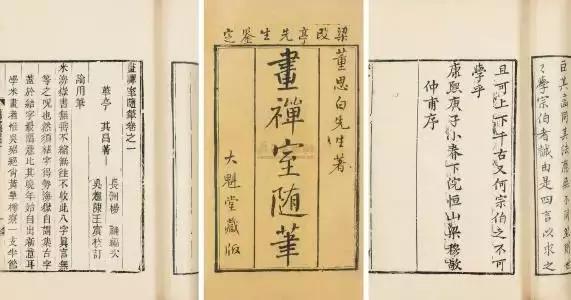 畫禪室隨筆卷之一
長洲楊 補編次
華亭 其昌著
論用筆
米海嶽書無垂不縮無往不收此八字真言無
等之咒也然須結字得勢海嶽自謂集古字
蓋於結字最留意比其晚年始自出新意耳
學米書者惟吳琚絕肖黃華樗寮一支半節
梁改亭先生鑒定
董思白先生著
畫禪室隨筆
大魁堂藏版
學宗伯者誠由是四言以求之
且可上下千古又何宗伯之不可
學乎
康熙庚子小春下浣恒山梁穆敬
仲甫序